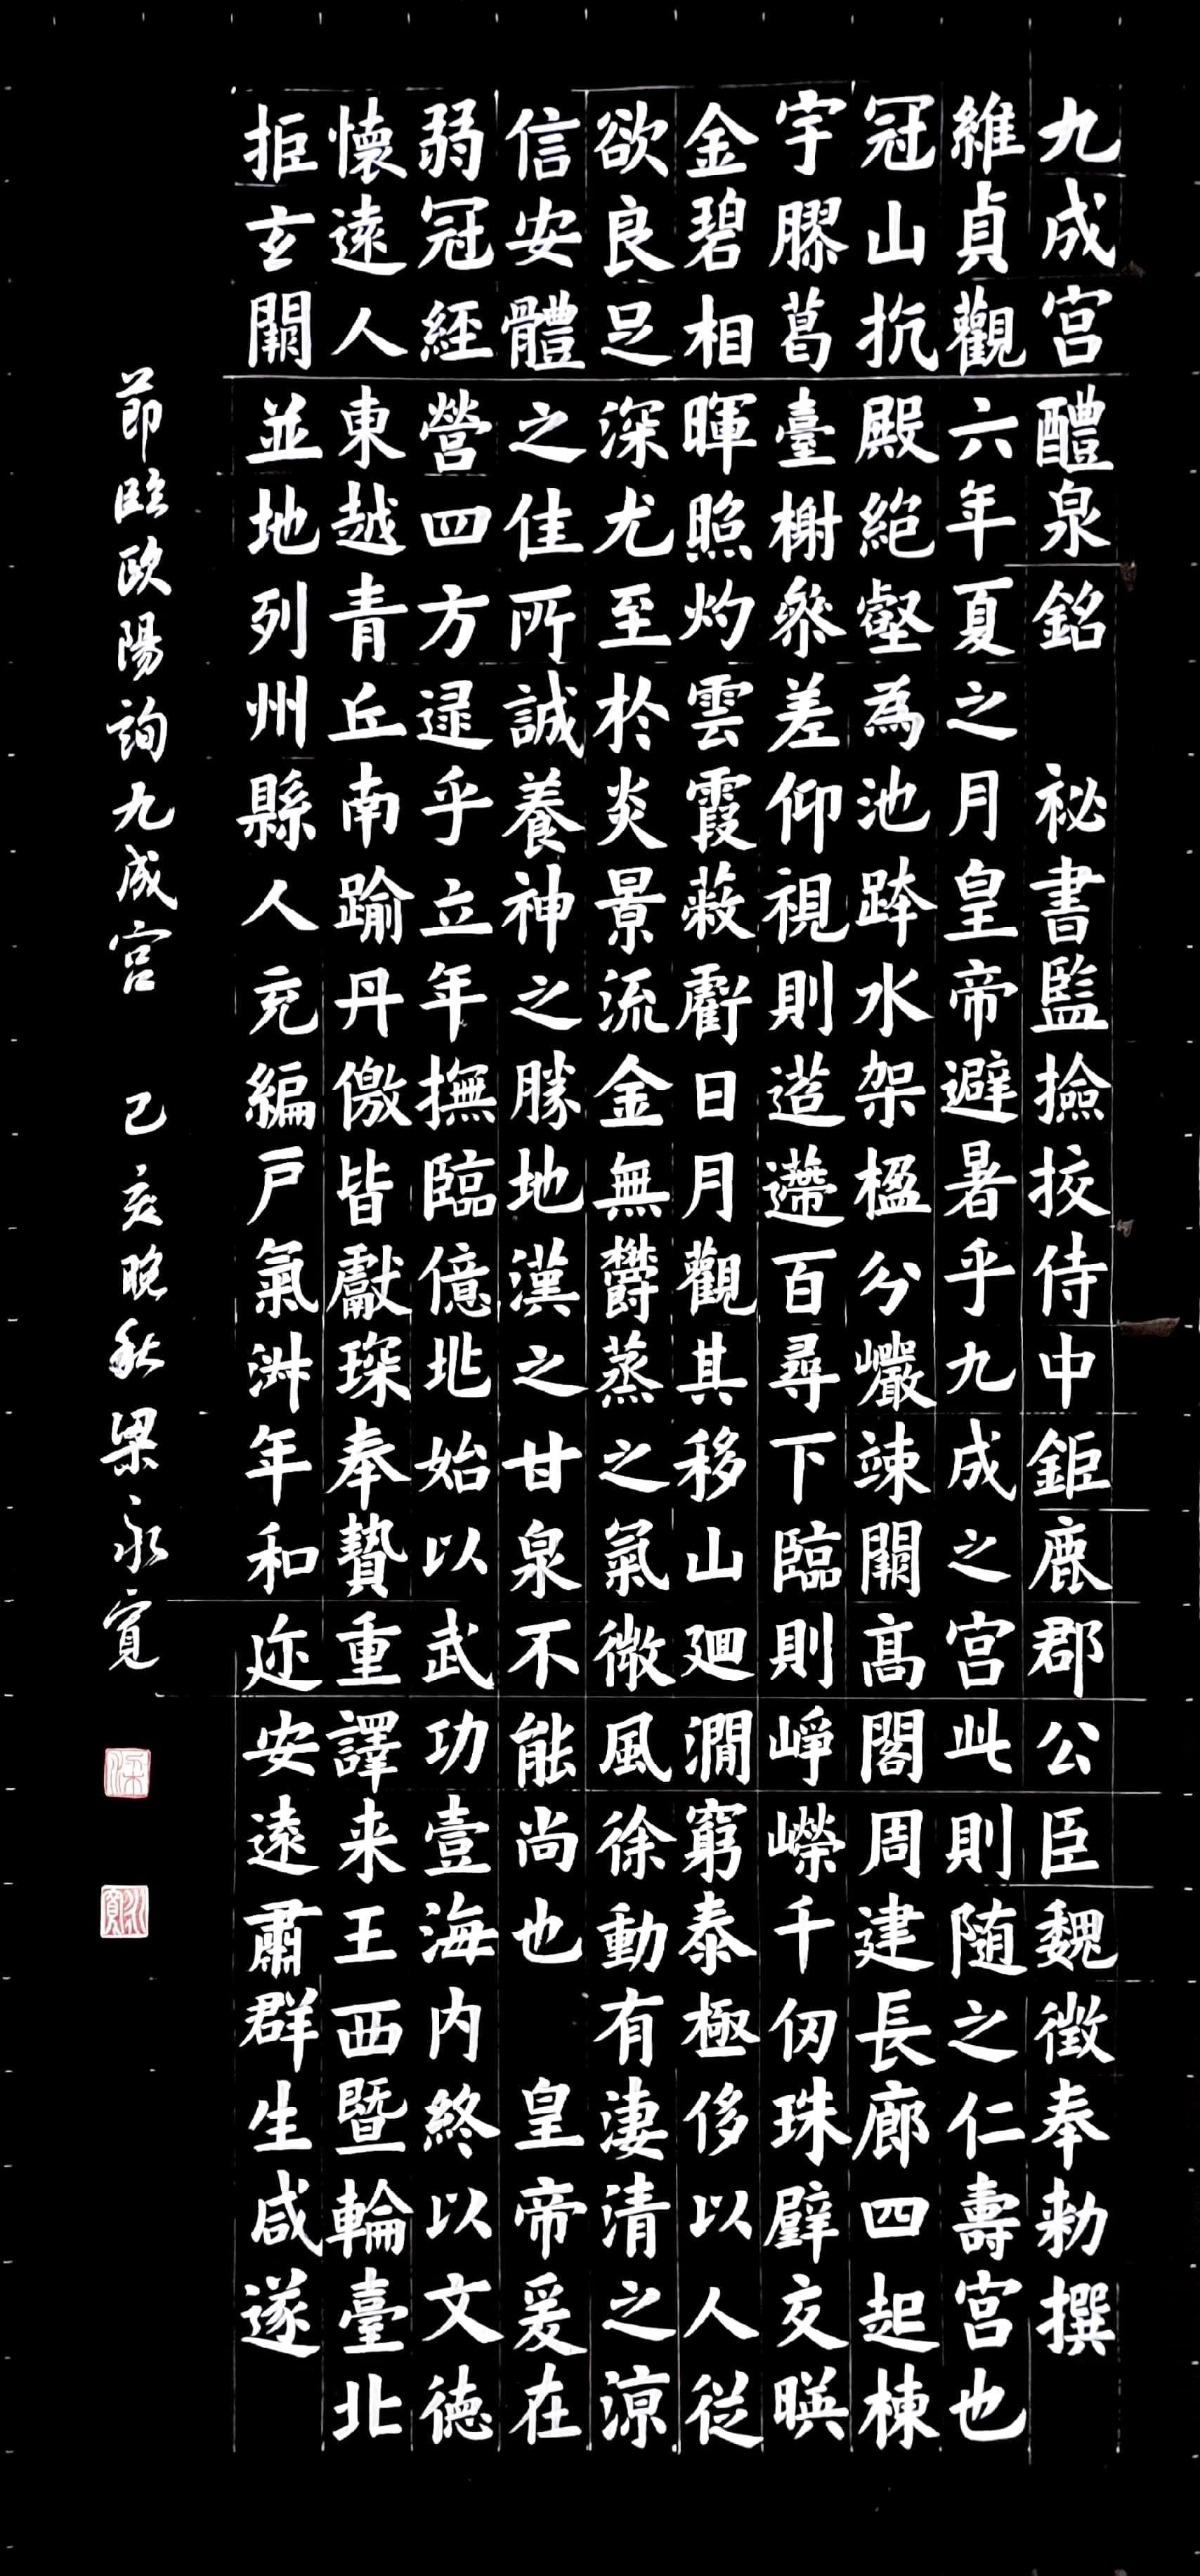 九成宮醴泉銘　祕書監撿挍侍中鉅鹿郡公臣魏徵奉勅撰
維貞觀六年夏之月皇帝避暑乎九成之宮此則随之仁壽宮也
冠山抗殿絶壑為池跨水架楹分巖竦闕高閣周建長廊四起棟
宇膠葛臺榭參差仰視則迢遰百尋下臨則崢嶸千仞珠璧交暎
金碧相暉照灼雲霞蔽虧日月觀其移山廻澗窮泰極侈以人從
欲良足深尤至於炎景流金無鬱蒸之氣微風徐動有淒清之涼
信安體之佳所誠養神之勝地漢之甘泉不能尚也　皇帝爰在
弱冠經營四方逯乎立年撫臨億兆始以武功壹海内終以文德
懷遠人東越青丘南踰丹儌皆獻琛奉贄重譯来王西暨輪臺北
拒玄闕並地列州縣人充編戶氣淑年和迩安遠肅群生咸遂
節臨歐陽詢九成宮　己亥晚秋梁永寬
梁
永寬